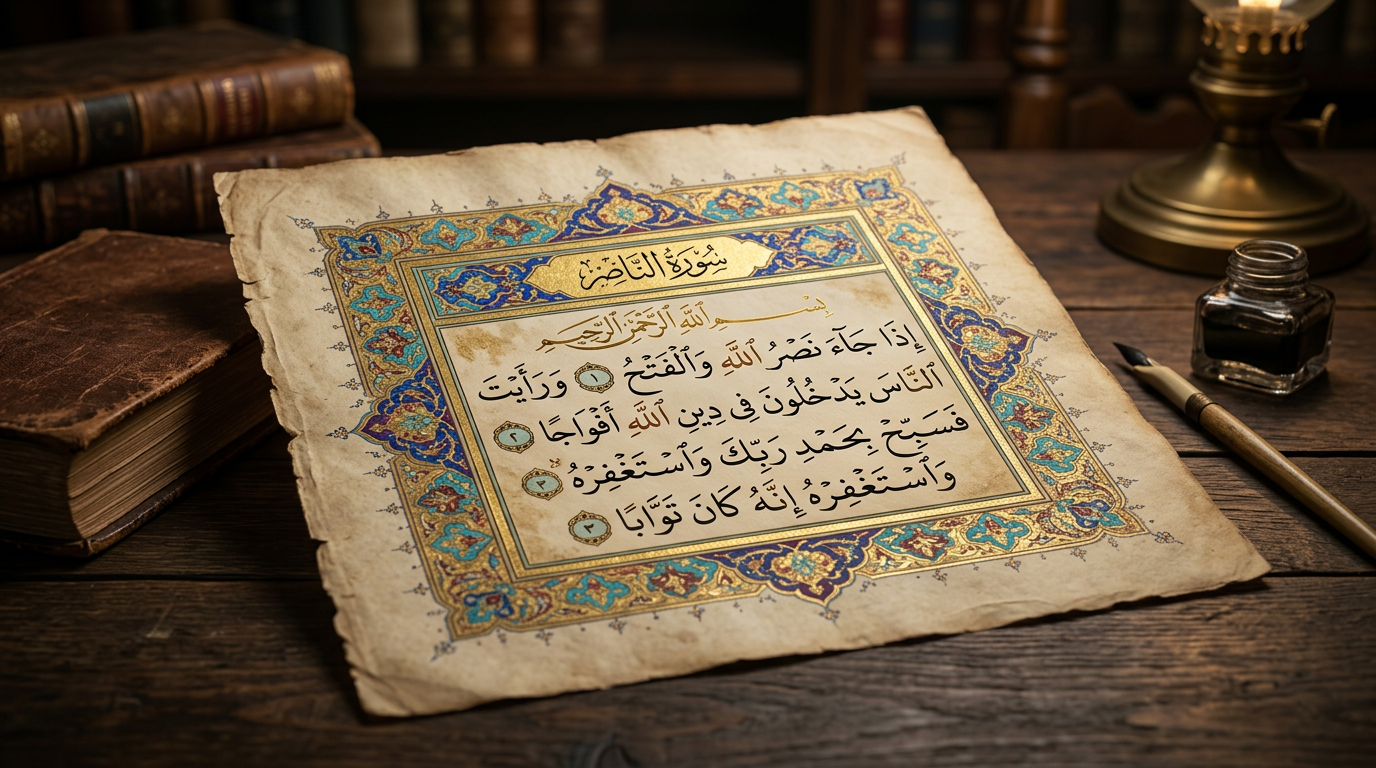 سُورَةُ النَّاصِرْ
بِسْمِ ٱللَّهِ ٱلرَّحْمَٰنِ ٱلرَّحِيمِ
إِذَا جَآءَ نَصْرُ ٱللَّهِ وَٱلْفَتْحُ ١ وَرَأَيْتَ
ٱلنَّاسَ يَدْخُلُونَ فِى دِينِ ٱللَّهِ أَفْوَاجًا ٢
فَسَبِّحْ بِحَمْدِ رَبِّكَ وَٱسْتَغْفِرْهُ ٣
وَٱسْتَغْفِرْهُ إِنَّهُ كَانَ تَوَّابًا ٣